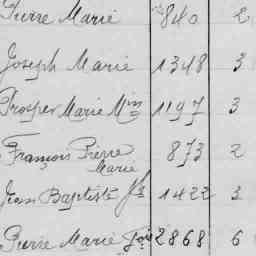 Pierre Marie 840 2
Joseph Marie 1348 3
Prosper Marie Min 1197 3
François Pierre Marie 873 2
Jean Baptiste fs 1422 3
Pierre Marie 2868 6